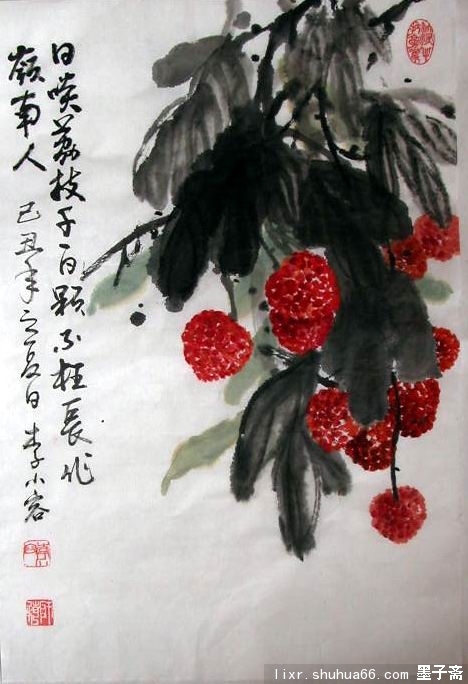 日啖荔枝千百颗不枉長作
嶺南人 己丑年之夏日 李小容
lixr.shuhua66.com 墨子斋